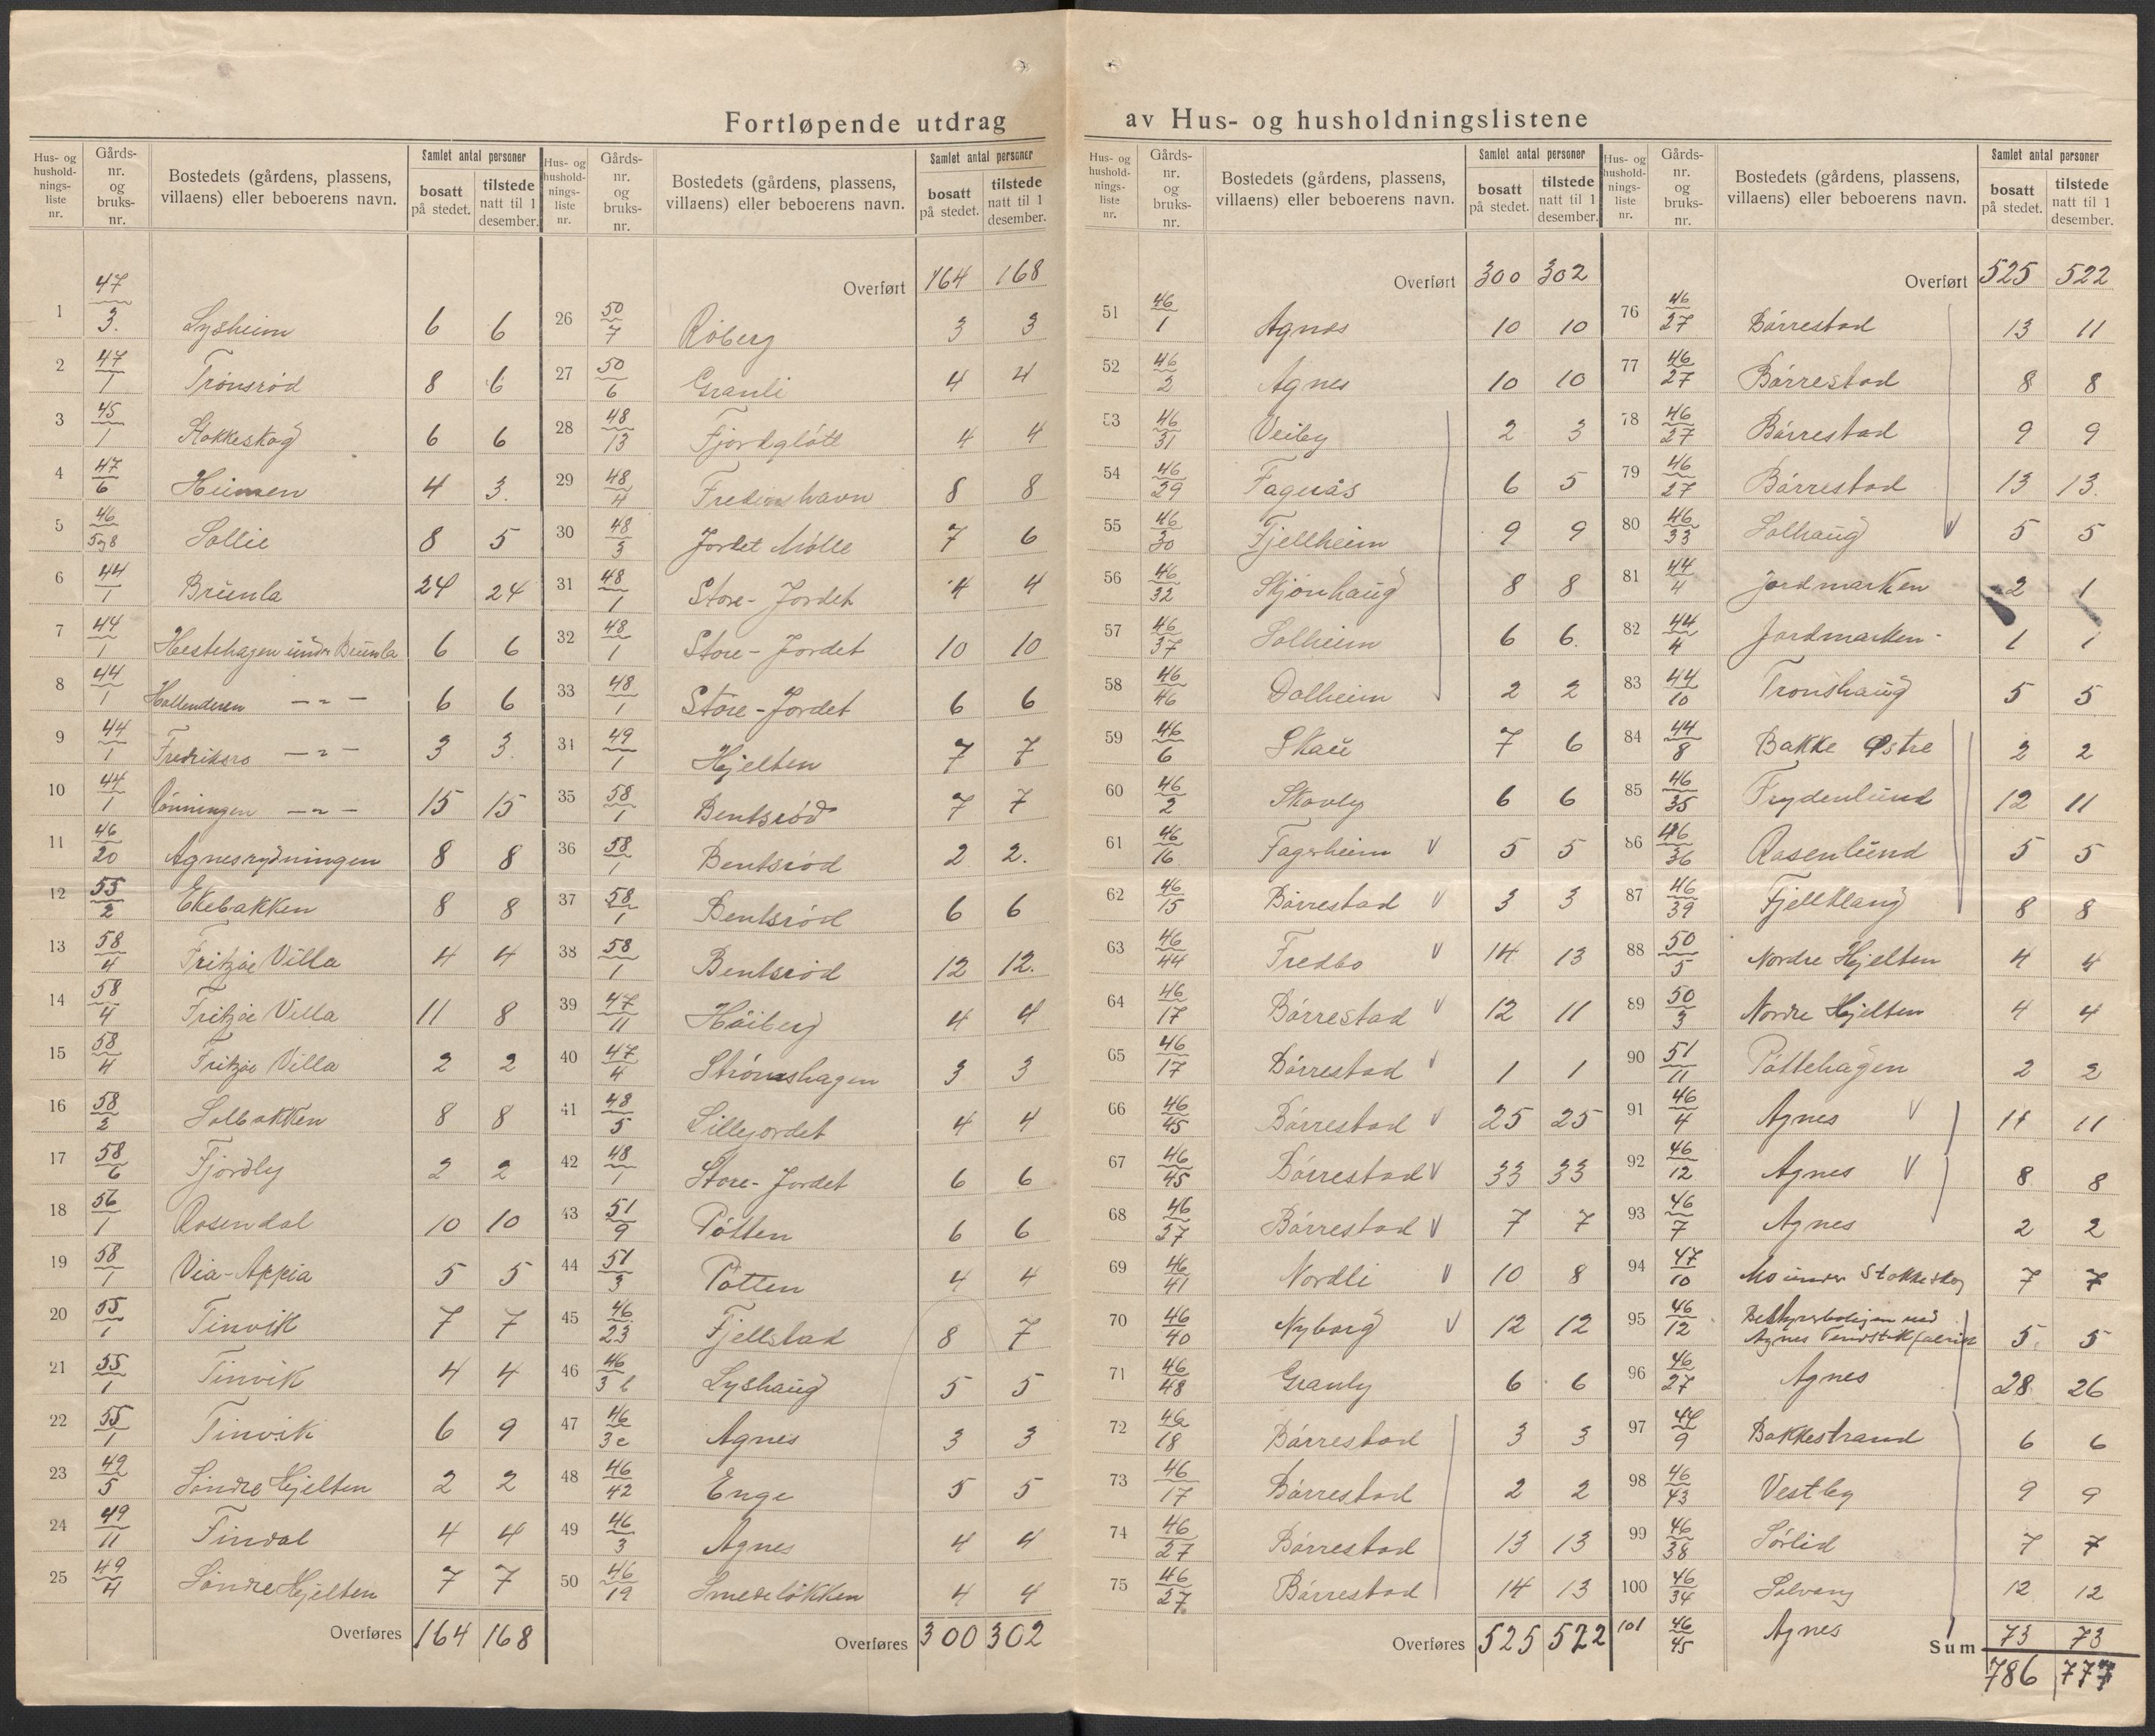 Fortløpende utdrag av Hus- og husholdningslistene
Hus- og husholdningsliste nr. | Gårds-nr. og bruks-nr. | Bostedets (gårdens, plassens, villaens) eller beboerens navn. | Samlet antal personer | bosatt på stedet. | tilstede natt til 1 desember.
1 47/3. Lysheim 6 6
2 47/1 Trönsröd 8 6
3 45/1 Stokkeskog 6 6
4 47/6 Heimen 4 3.
5 46/5og8 Sollie 8 5
6 44/1 Brünla 24 24
7 44/1 Hestehagen ünder Brünla 6 6
8 44/1 Hollenderen — " — 6 6
9 44/1 Fredriksro — " — 3 3
10 44/1 Rönningen — " — 15 15
11 46/20 Agnesrydningen 8 8
12 55/2 Ekebakken 8 8
13 58/4 Fritzöe Villa 4 4
14 58/4 Fritzöe Villa 11 8
15 58/4 Fritzöe Villa 2 2
16 58/2 Solbakken 8 8
17 58/6 Fjordly 2 2
18 56/1 Rosendal 10 10
19 58/1 Via-Appia 5 5
20 55/1 Tinvik 7 7
21 55/1 Tinvik 4 4
22 55/1 Tinvik 6 9
23 49/5 Söndre Hjelten 2 2
24 49/11 Findal 4 4
25 49/4 Söndre Hjelten 7 7
Overføres 164 168
Hus- og husholdningsliste nr. | Gårds-nr. og bruks-nr. | Bostedets (gårdens, plassens, villaens) eller beboerens navn. | Samlet antal personer | bosatt på stedet. | tilstede natt til 1 desember.
Overført 164 168
26 50/7 Röberg 3 3
27 50/6 Granli 4 4
28 48/13 Fjordglött 4 4
29 48/4 Fredenshavn 8 8
30 48/3 Jordet Mölle 7 6
31 48/1 Store-Jordet 4 4
32 48/1 Store-Jordet 10 10
33 48/1 Store-Jordet 6 6
34 49/1 Hjelten 7 7
35 58/1 Bentsröd 7 7
36 58/1 Bentsröd 2 2.
37 58/1 Bentsröd 6 6
38 58/1 Bentsröd 12 12.
39 47/11 Höiberg 4 4
40 47/4 Strömshagen 3 3
41 48/5 Lillejordet 4 4
42 48/1 Store-Jordet 6 6
43 51/9 Pötten 6 6
44 51/3 Pötten 4 4
45 46/23 Fjellstad 8 7
46 46/3 b Lyshaüg 5 5
47 46/3c Agnes 3 3
48 46/42 Enge 5 5
49 46/3 Agnes 4 4
50 46/19 Smedelökken 4 4
Overføres 300 302
Hus- og husholdningsliste nr. | Gårds-nr. og bruks-nr. | Bostedets (gårdens, plassens, villaens) eller beboerens navn. | Samlet antal personer | bosatt på stedet. | tilstede natt til 1 desember.
Overført 300 302
51 46/1 Agnes 10 10
52 46/2 Agnes 10 10
53 46/31 Veiby 2 3
54 46/29 Fageräs 6 5
55 46/30 Fjellheim 9 9
56 46/32 Skjönhaüg 8 8
57 46/37 Solheim 6 6.
58 46/46 Dalheim 2 2
59 46/6 Skaü 7 6
60 46/2 Skovly 6 6
61 46/16 Fagerheim V 5 5
62 46/15 Börrestad V 3 3
63 46/44 Fredbo V 14 13
64 46/17 Börrestad V 12 11
65 46/17 Börrestad V 1 1
66 46/45 Börrestad V 25 25
67 46/45 Börrestad V 33 33
68 46/27 Börrestad V 7 7
69 46/41 Nordli V 10 8
70 46/40 Nyborg V 12 12
71 46/48 Granly 6 6
72 46/18 Börrestad 3 3
73 46/17 Börrestad 2 2
74 46/27 Börrestad 13 13
75 46/27. Börrestad 14 13
Overføres 525 522
Hus- og husholdningsliste nr. | Gårds-nr. og bruks-nr. | Bostedets (gårdens, plassens, villaens) eller beboerens navn. | Samlet antal personer | bosatt på stedet. | tilstede natt til 1 desember.
Overført 525 522
76 46/27 Börrestad 13 11
77 46/27 Börrestad 8 8
78 46/27 Börrestad 9 9
79 46/27 Börrestad 13 13.
80 46/33 Solhaüg 5 5
81 44/4 Jordmarken 2 1
82 44/4 Jordmarken 1 1
83 44/10 Tronshaüg 5 5
84 44/8 Bakke Østre 2 2
85 46/35 Frydenlünd 12 11
86 46/36 Rosenlünd 5 5
87 46/39 Fjellklang 8 8
88 50/5 Nordre Hjelten 4 4
89 50/3 Nordre Hjelten 4 4
90 51/11 Pöttehagen 2 2
91 46/4 Agnes V 11 11
92 46/12 Agnes V 8 8
93 46/7 Agnes 2 2
94 47/10 Mo under Stokkeskog 7 7
95 46/12 Bestyrerboligen ved Agnes Tendstikfabrik 5. 5
96 46/27 Agnes 28 26
97 44/9 Bakkestrand 6 6
98 46/43 Vestby 9 9
99 46/38 Sørlid 7 7
100 46/34 Solvang 12 12
101 46/45 Agnes 73 73
Sum 786 777